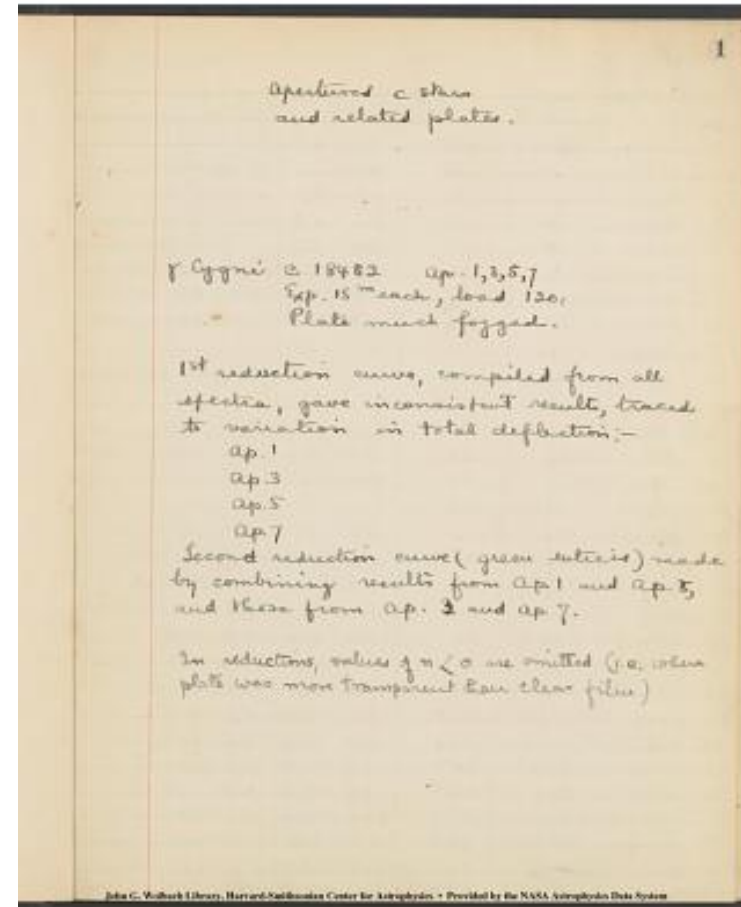 1
Apertured c stars
and related plates.
γ Cygni c 18482 ap. 1,3,5,7
Exp. 15 m each, load 120.
Plate much fogged.
1st reduction curve, compiled from all
spectra, gave inconsistent results, traced
to variation in total deflection:-
ap. 1
ap. 3
ap. 5
ap. 7
Second reduction curve (green entries) made
by combining results from ap 1 and ap. 5,
and those from ap. 3 and ap 7.
In reductions, values of n < 0 are omitted (i.e. where
plate was more transparent than clear film)
John G. Wolbach Library, Harvard-Smithsonian Center for Astrophysics • Provided by the NASA Astrophysics Data System